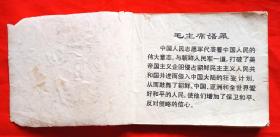 毛主席语录
中国人民志愿军代表着中国人民的
伟大意志，与朝鲜人民军一道，打破了美
帝国主义企图侵占朝鲜民主主义人民共
和国并进而侵入中国大陆的狂妄计划，
从而鼓舞了朝鲜、中国、亚洲和全世界爱
好和平的人民，使他们增加了保卫和平、
反对侵略的信心。